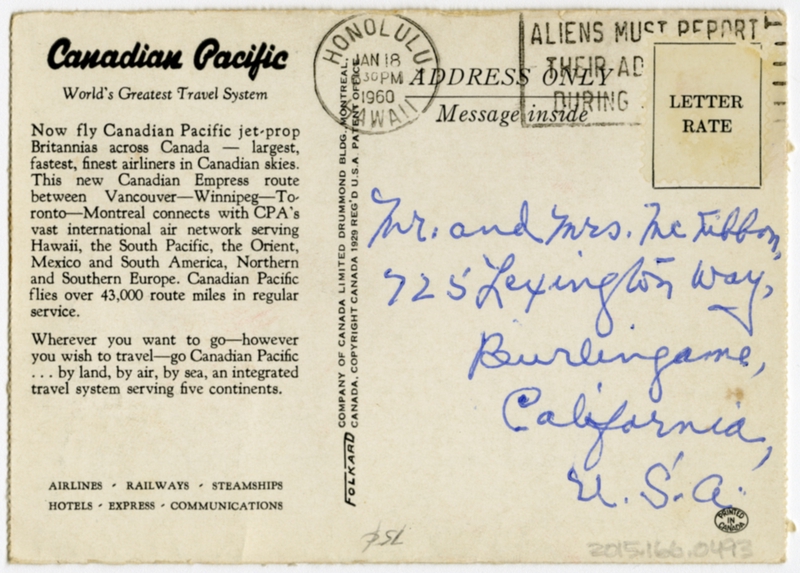 Canadian Pacific
World's Greatest Travel System
Now fly Canadian Pacific jet-prop
Britannias across Canada — largest,
fastest, finest airliners in Canadian skies.
This new Canadian Empress route
between Vancouver—Winnipeg—To-
ronto—Montreal connects with CPA's
vast international air network serving
Hawaii, the South Pacific, the Orient,
Mexico and South America, Northern
and Southern Europe. Canadian Pacific
flies over 43,000 route miles in regular
service.
Wherever you want to go—however
you wish to travel—go Canadian Pacific
. . . by land, by air, by sea, an integrated
travel system serving five continents.
AIRLINES - RAILWAYS - STEAMSHIPS
HOTELS - EXPRESS - COMMUNICATIONS
FOLKARD COMPANY OF CANADA LIMITED DRUMMOND BLDG., MONTREAL,
CANADA. COPYRIGHT CANADA 1929 REG'D U.S.A. PATENT OFFICE.
HONOLULU
JAN 18
30PM
1960
HAWAII
ALIENS MUST REPORT
THEIR AD
DURING
ADDRESS ONLY
Message inside
LETTER
RATE
Mr. and Mrs. McKibbon,
725 Lexington Way,
Burlingame,
California,
U.S.A.
PRINTED
IN
CANADA
2015.166.0493